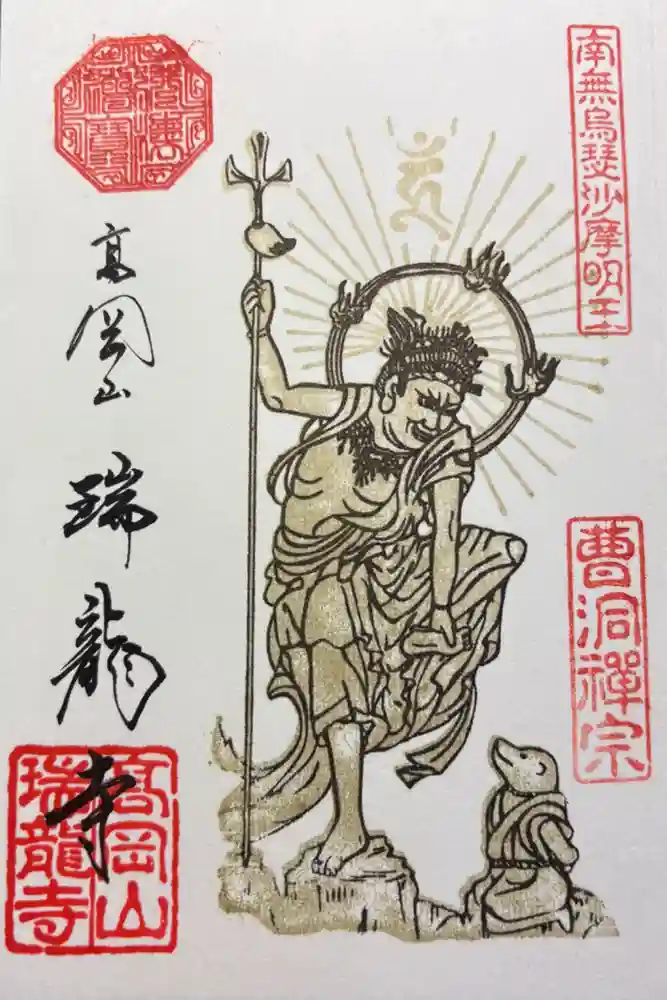 南無烏瑟沙摩明王
曹洞禪宗
高岡山
瑞龍寺
髙岡山
瑞龍寺